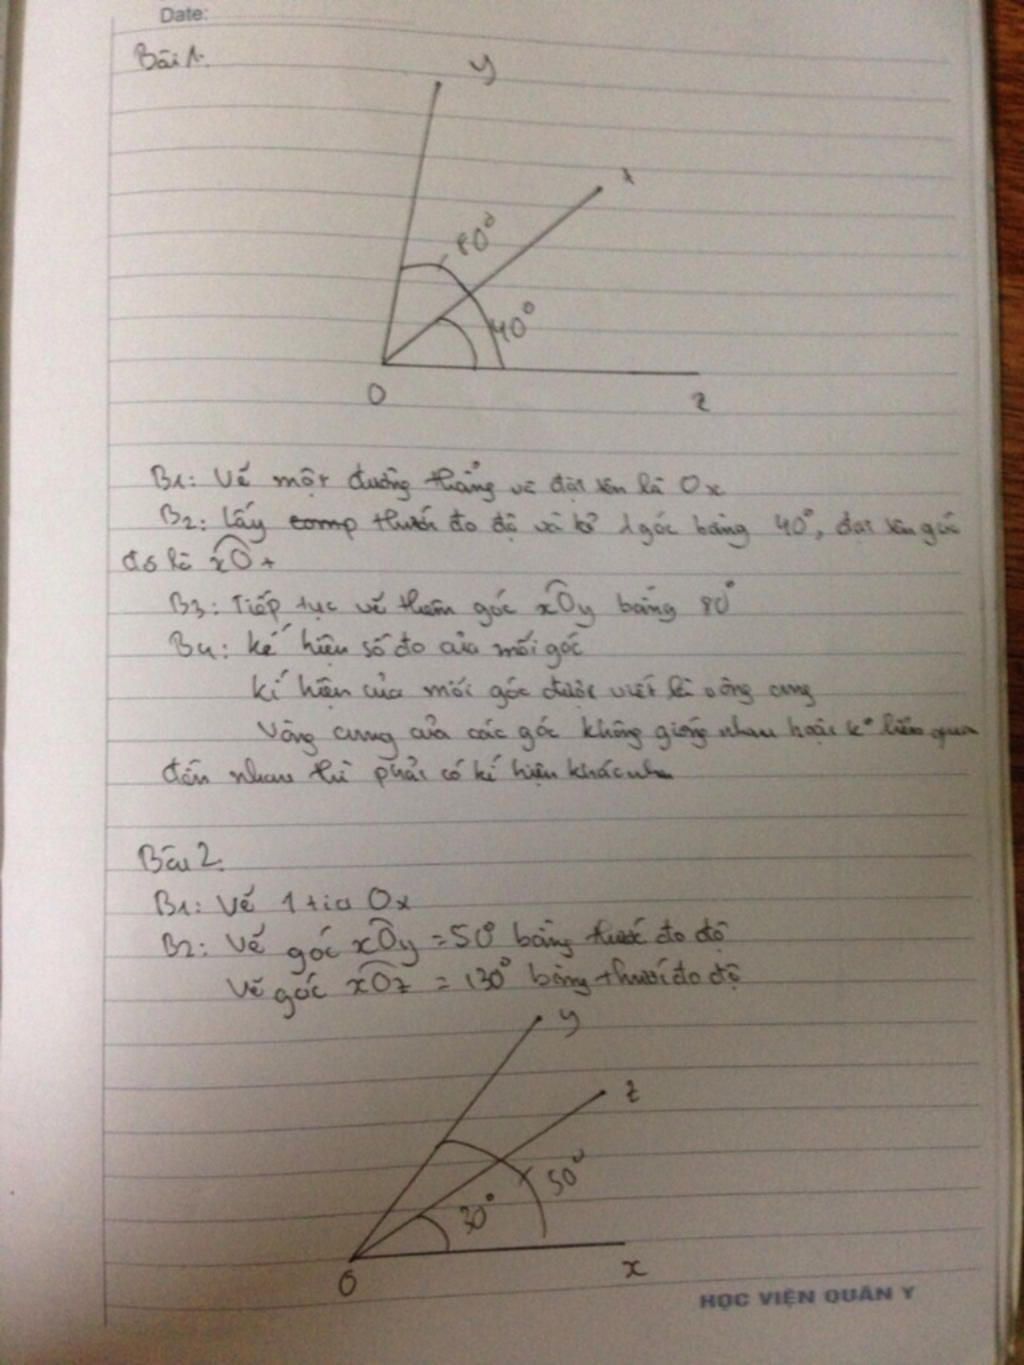 Date:
Bài 1.
y
x
80°
40°
O
z
B1: Vẽ một đường thẳng và đặt tên là Ox
B2: Lấy comp thước đo độ và kẻ 1 góc bằng 40°, đặt tên góc
đó là xOt
B3: Tiếp tục vẽ thêm góc xOy bằng 80°
B4: kế hiệu số đo của mỗi góc
kí hiệu của mỗi góc được viết là vòng cung
Vòng cung của các góc không giống nhau hoặc k° liên quan
đến nhau thì phải có kí hiệu khác nhau
Bài 2.
B1: Vẽ 1 tia Ox
B2: Vẽ góc xOy = 50° bằng thước đo độ
Vẽ góc xOz = 130° bằng thước đo độ
y
z
50°
30°
O
x
HỌC VIỆN QUÂN Y